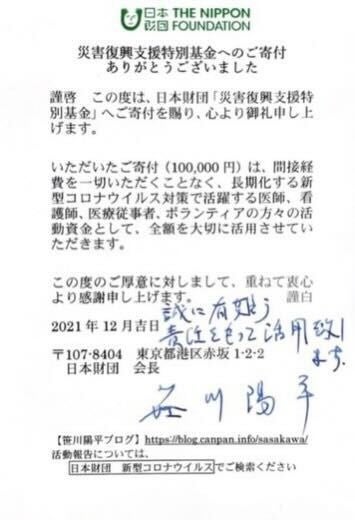 日本財団 THE NIPPON FOUNDATION
災害復興支援特別基金へのご寄付
ありがとうございました
謹啓 この度は、日本財団「災害復興支援特
別基金」へご寄付を賜り、心より御礼申し上
げます。
いただいたご寄付（100,000円）は、間接経
費を一切いただくことなく、長期化する新
型コロナウイルス対策で活躍する医師、看
護師、医療従事者、ボランティアの方々の活
動資金として、全額を大切に活用させてい
ただきます。
この度のご厚意に対しまして、重ねて衷心
より感謝申し上げます。 謹白
誠に有難う
責任をもって活用致し
ます。
2021年12月吉日
〒107-8404 東京都港区赤坂1-2-2
日本財団 会長
笹川陽平
【笹川陽平ブログ】https://blog.canpan.info/sasakawa/
活動報告については、
日本財団 新型コロナウイルスでご検索ください